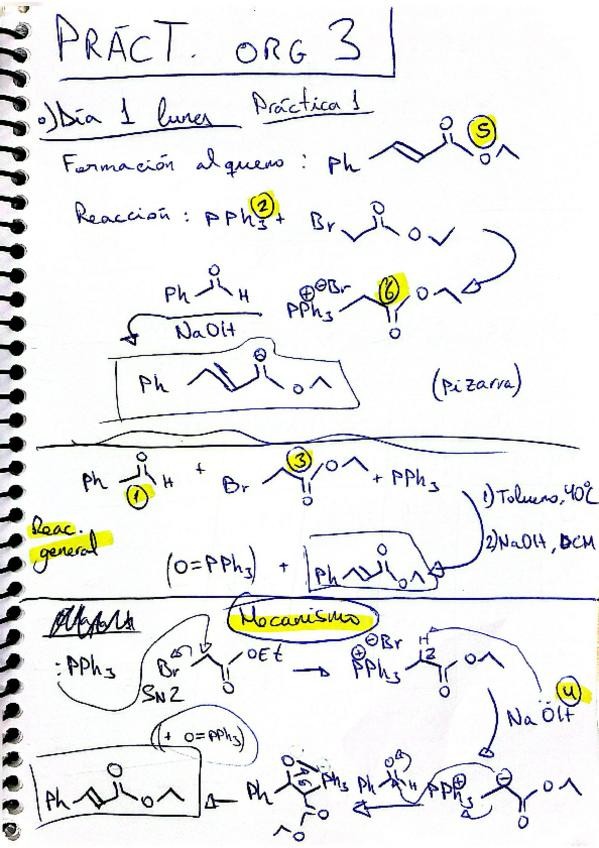 PRÁCT. ORG 3
o) Día 1 lunes Práctica 1
Formación alqueno : Ph O O 5
Reacción : PPh3 2 + Br O O
Ph O H ⊕ ⊖Br PPh3 6 O O
NaOH
Ph O O (Pizarra)
Ph O H 1 + Br 3 O O + PPh3
1) Tolueno, 40°C
2) NaOH, DCM
Reac.
general
(O=PPh3) + Ph O O
Mecanismo
:PPh3 Br OEt O → ⊕ ⊖Br PPh3 H O O
SN2
4
NaÖH
(+ O=PPh3)
Ph O O O PPh3 Ph O O Ph O H PPh3 ⊕ ⊖ O O